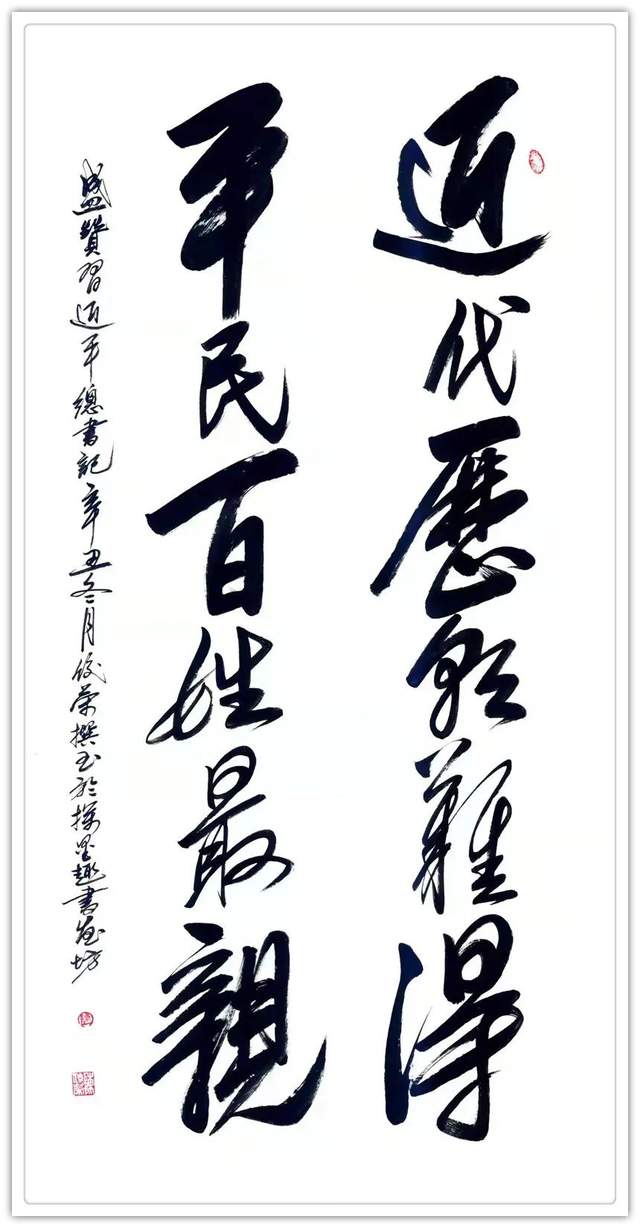 近代歷朝難得
平民百姓最親
盛贊習近平總書記辛丑冬月俊荣撰书於探墨趣書畫坊